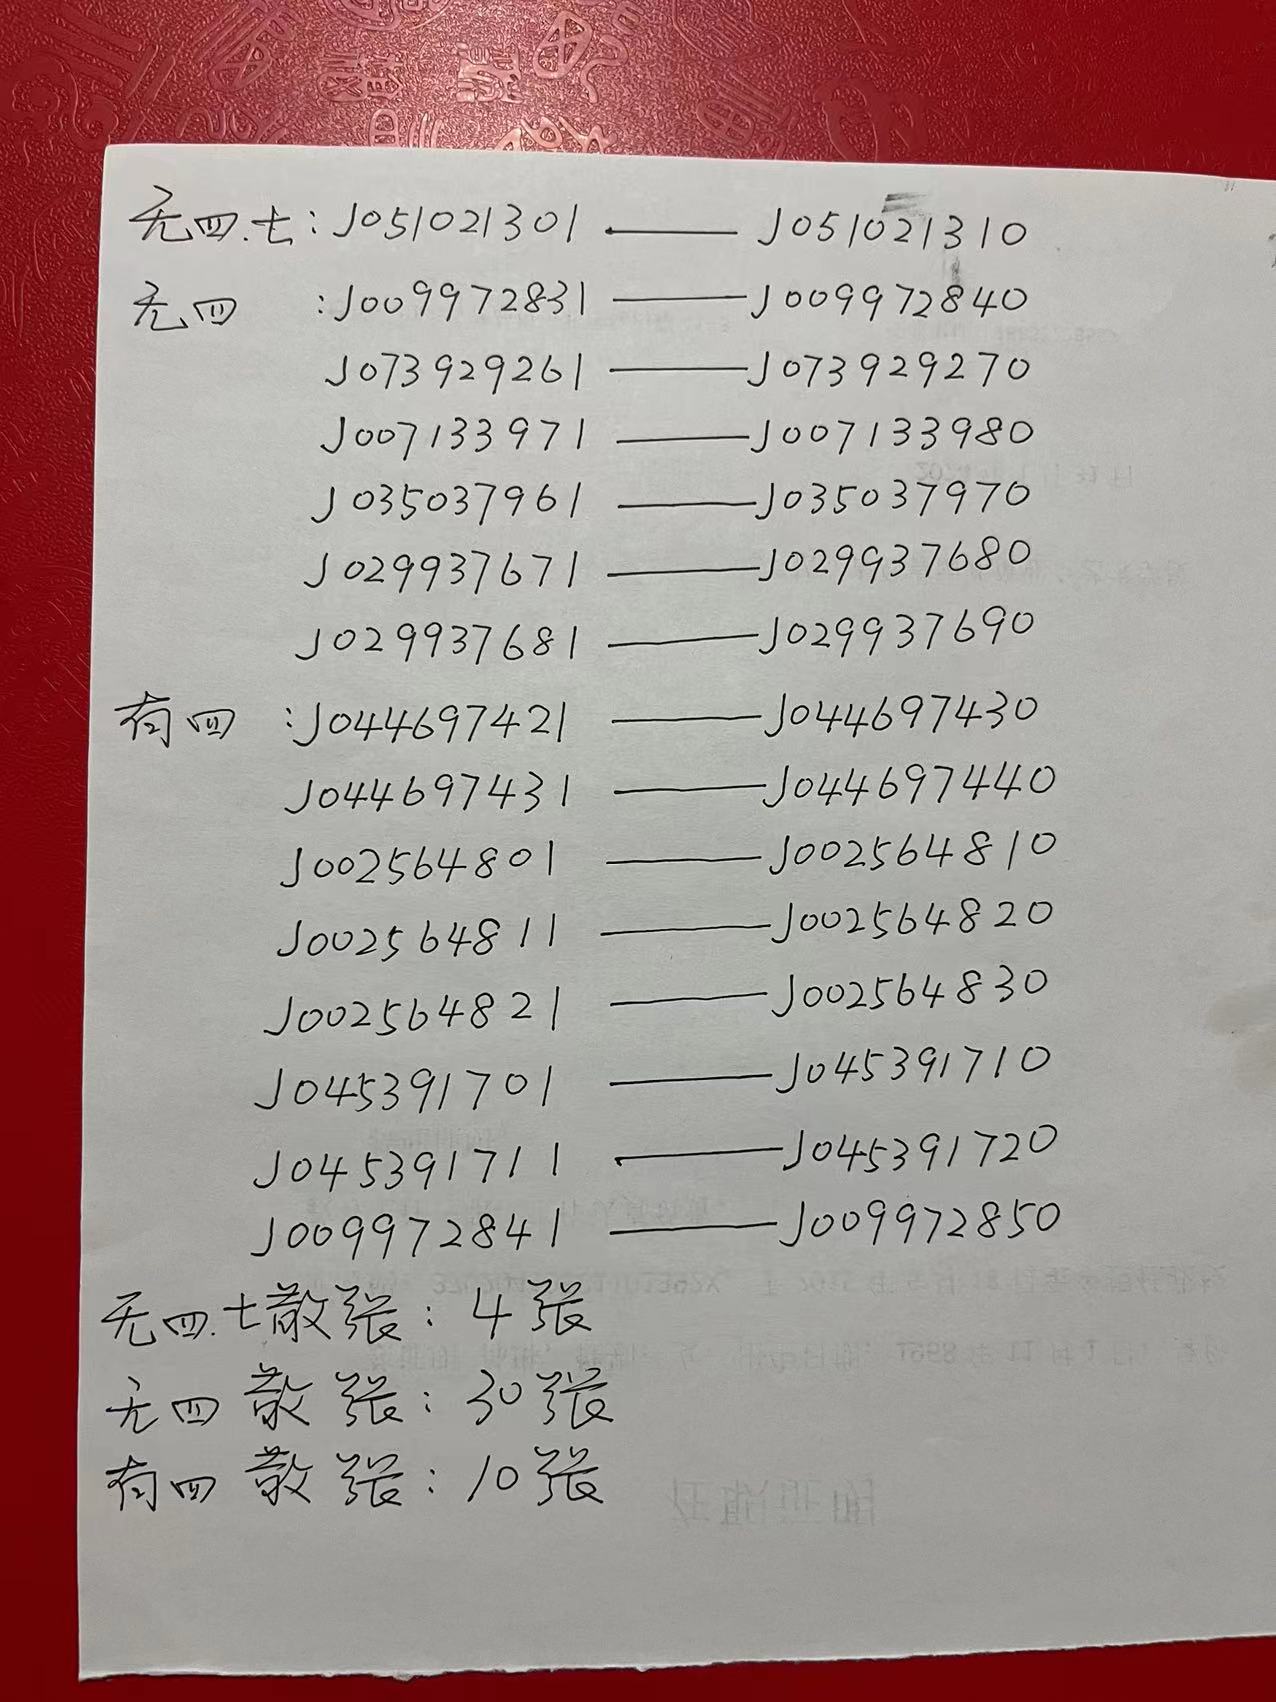 无四.七:J051021301 —— J051021310
无四 :J009972831 —— J009972840
J073929261 —— J073929270
J007133971 —— J007133980
J035037961 —— J035037970
J029937671 —— J029937680
J029937681 —— J029937690
有四 :J044697421 —— J044697430
J044697431 —— J044697440
J002564801 —— J002564810
J002564811 —— J002564820
J002564821 —— J002564830
J045391701 —— J045391710
J045391711 —— J045391720
J009972841 —— J009972850
无四.七散张:4张
无四散张:30张
有四散张:10张